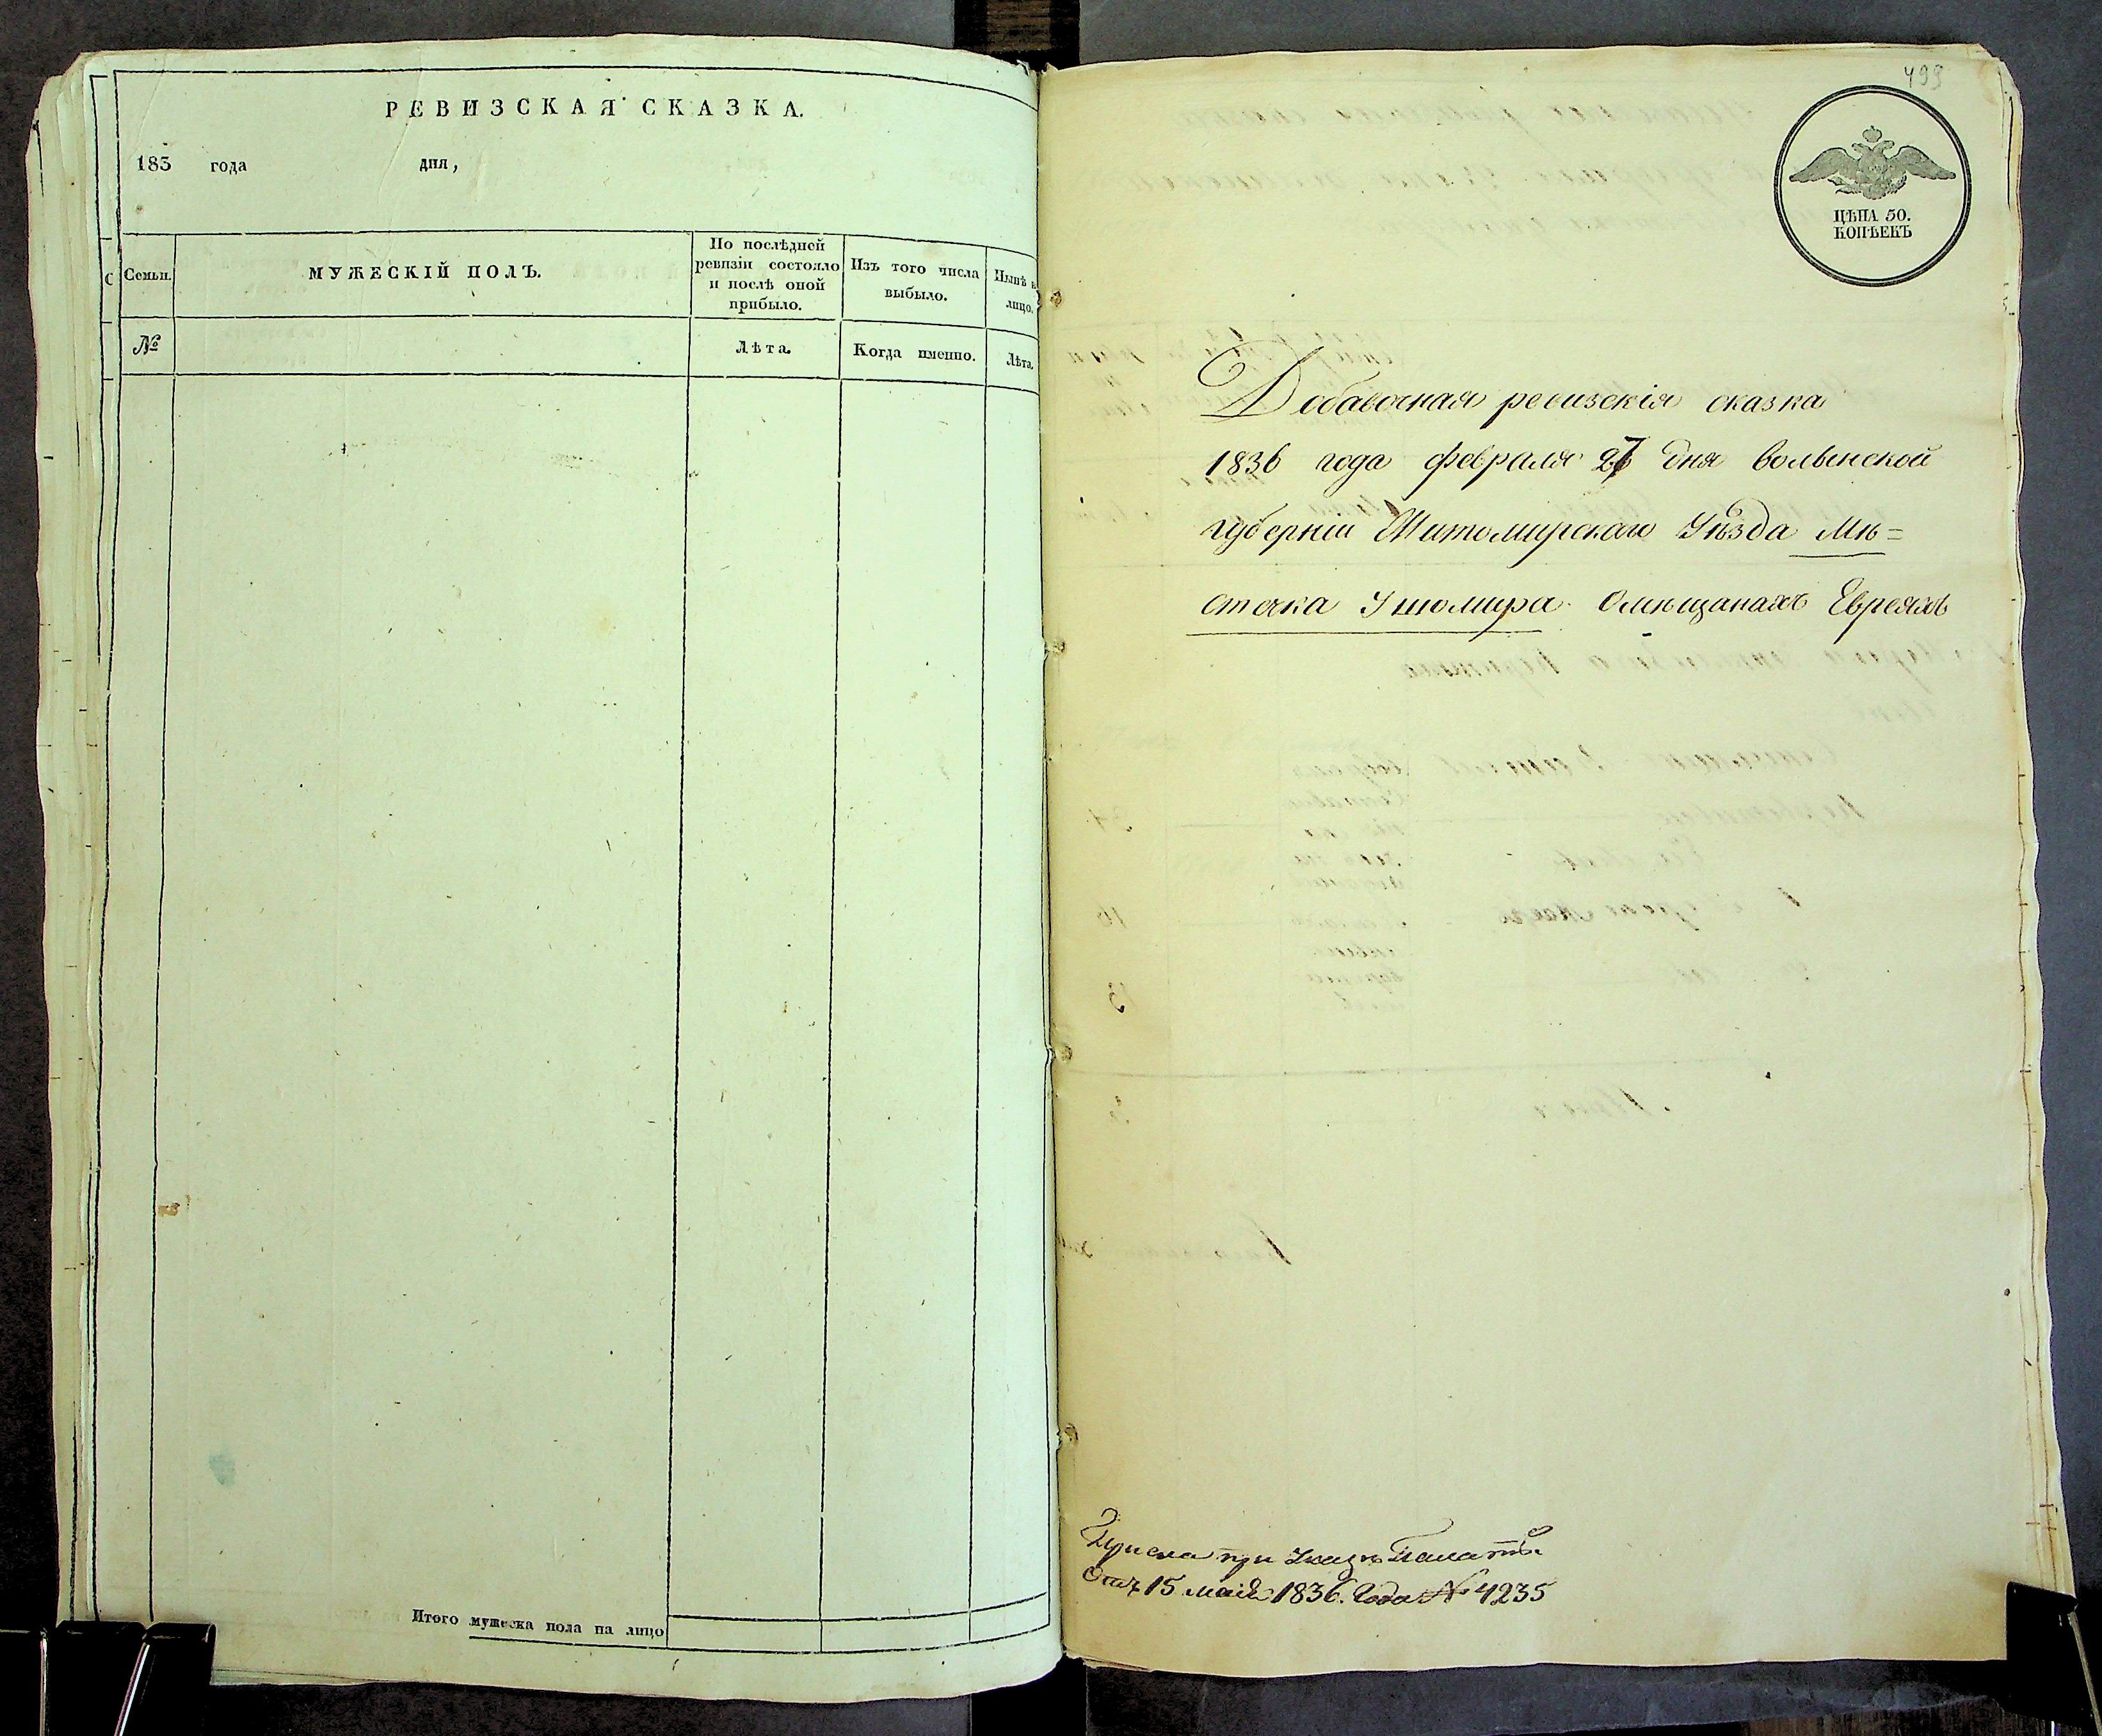 РЕВИЗСКАЯ СКАЗКА.
183 года дня,
Семьи.
МУЖЕСКІЙ ПОЛЪ.
По послѣдней
ревизіи состояло
и послѣ оной
прибыло.
Изъ того числа
выбыло.
Нынѣ
лицо.
№
Лѣта.
Когда именно.
Лѣта.
Итого мужеска пола на лицо
499
ЦѢНА 50.
КОПѢЕКЪ
Добавочная ревизскія сказка
1836 года февраля 27 дня волынской
губерніи Житомирскаго Уѣзда Мѣ=
стечка Ушомира Омѣщанахъ Евреяхъ
при Указѣ Палаты
Отъ 15 маія 1836. Года № 4235